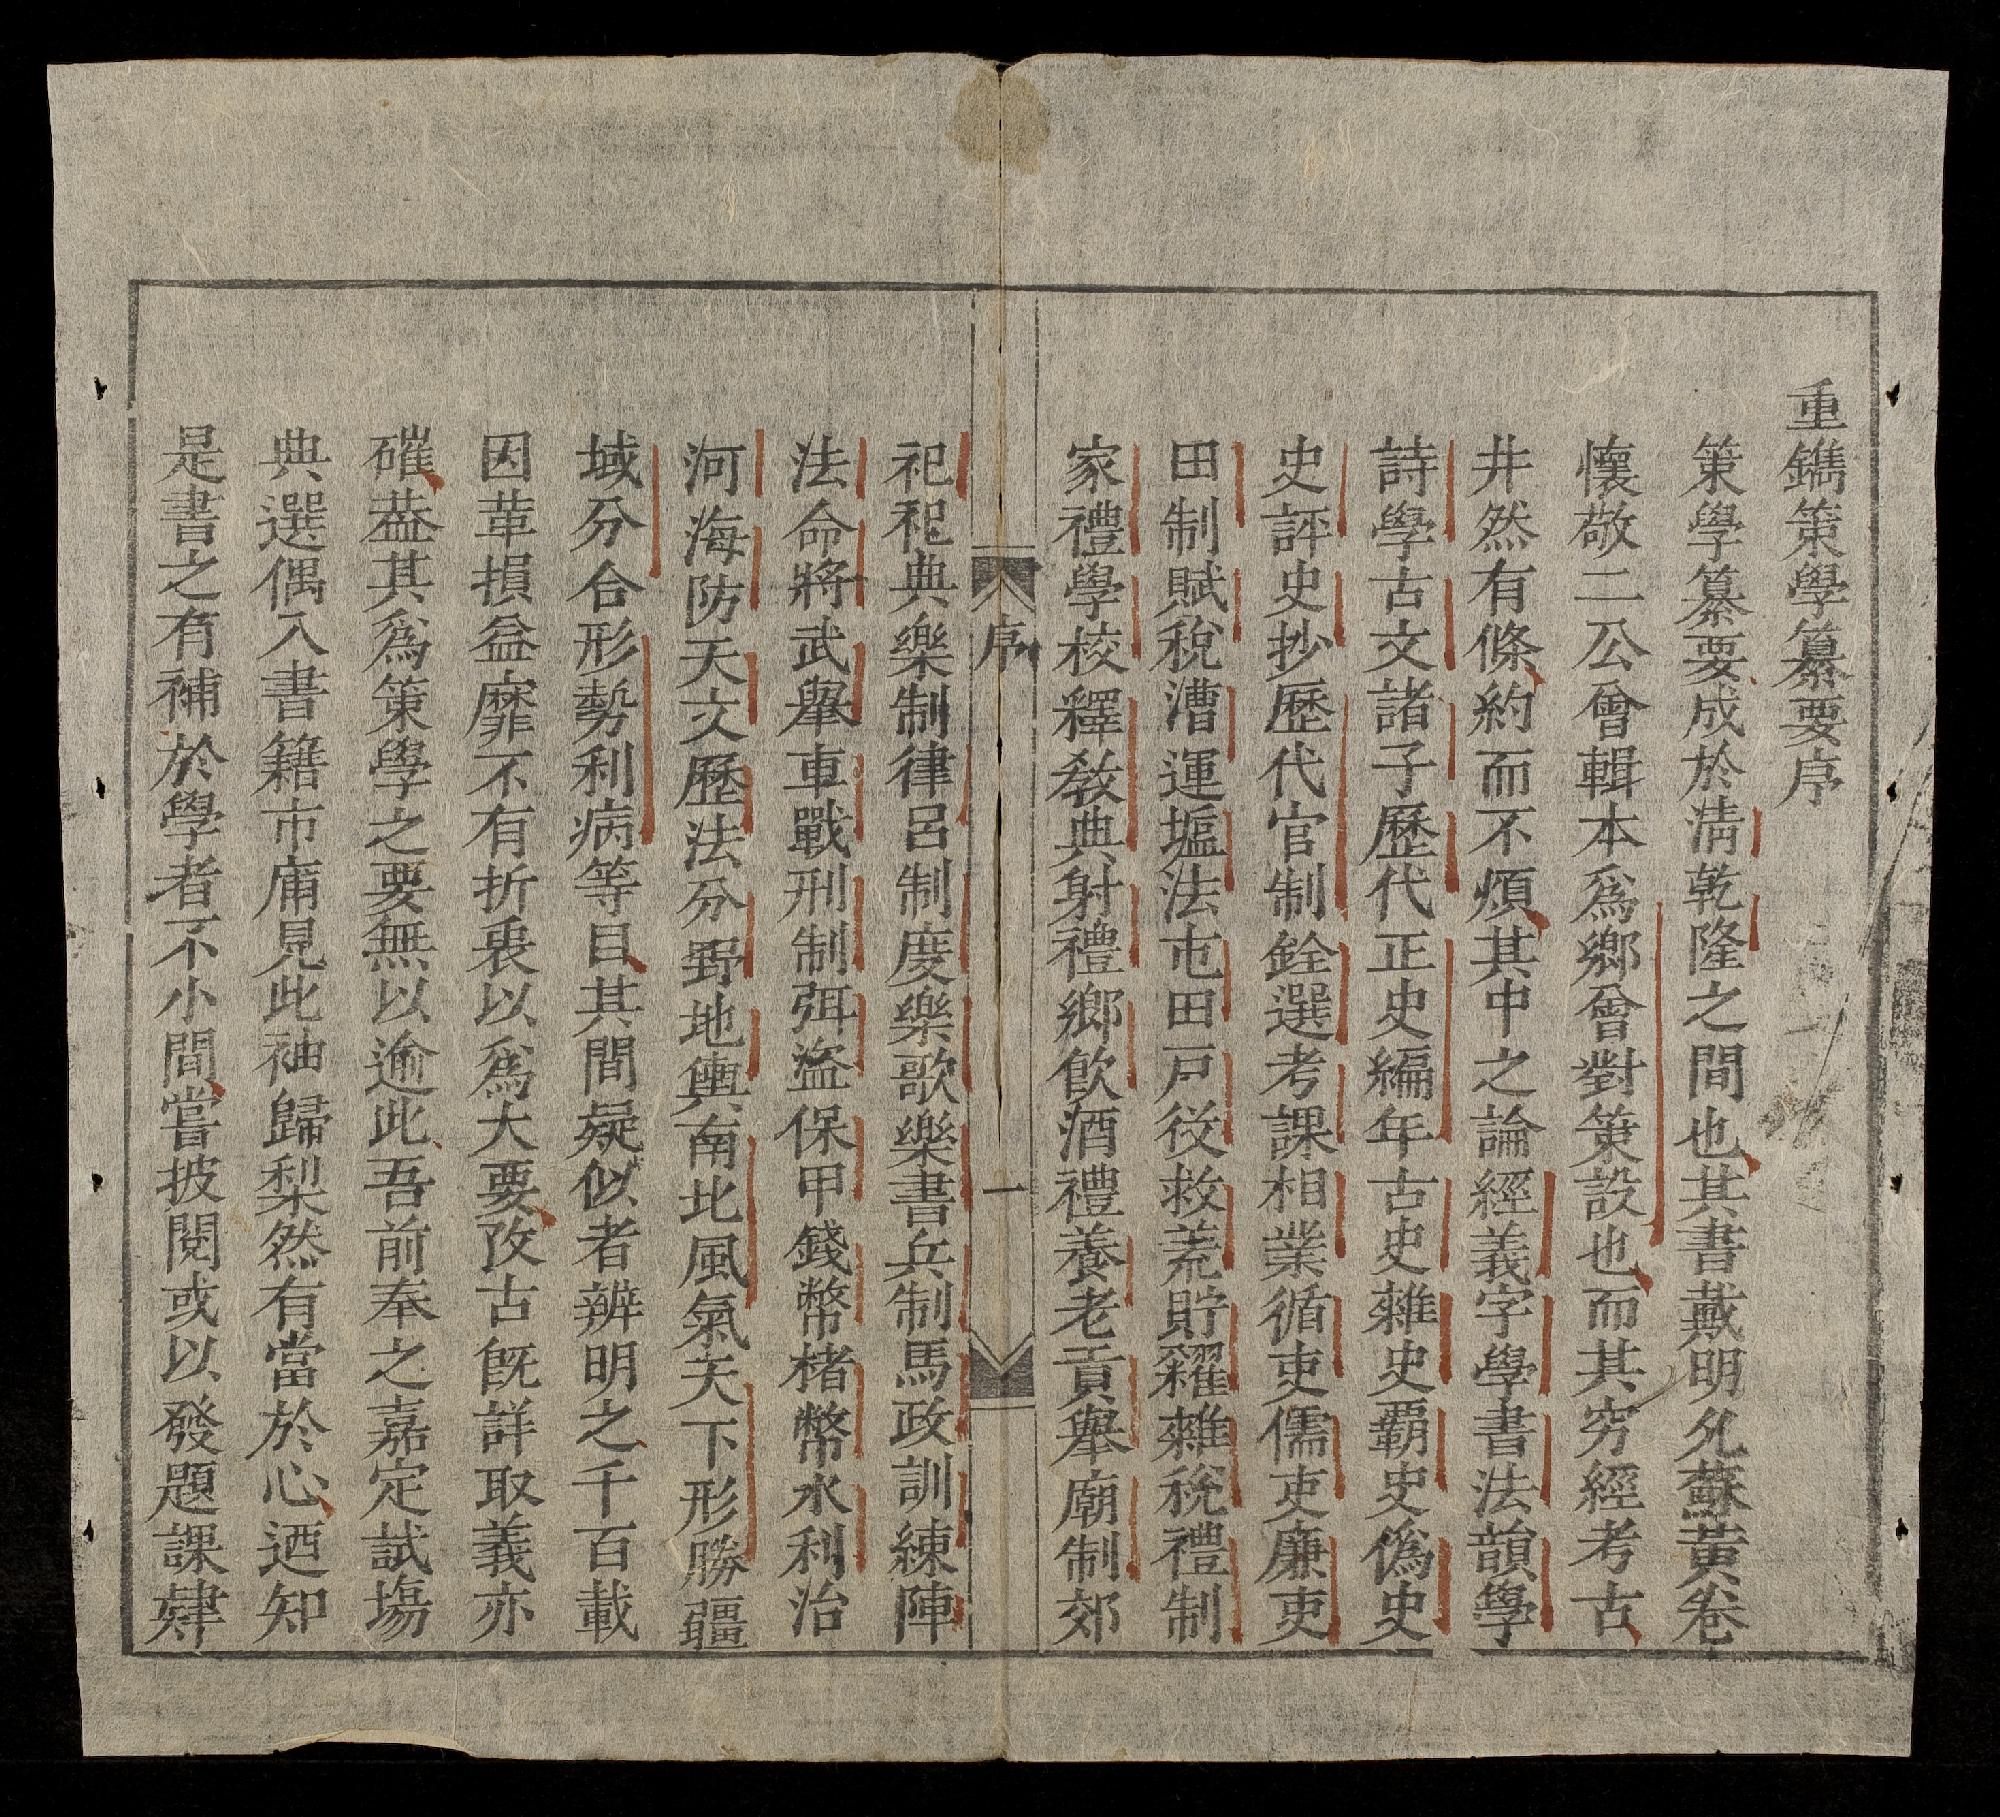 重鐫策學纂要序
策學纂要成於清乾隆之間也其書戴明允蘇黃卷
懷敬二公會輯本爲鄉會對策設也而其穷經考古
井然有條約而不煩其中之論經義字學書法韻學
詩學古文諸子歷代正史編年古史雜史覇史僞史
史評史抄歷代官制銓選考課相業循吏儒吏廉吏
田制賦稅漕運塩法屯田戸役救荒貯糴雜稅禮制
家禮學校釋教典射禮鄉飲酒禮養老貢舉廟制郊
序
一
祀祀典樂制律呂制度樂歌樂書兵制馬政訓練陣
法命將武舉車戰刑制弭盜保甲錢幣楮幣水利治
河海防天文歷法分野地輿南北風氣天下形勝疆
域分合形勢利病等目其間疑似者辨明之千百載
因革損益靡不有折衷以爲大要攷古旣詳取義亦
確葢其爲策學之要無以逾此吾前奉之嘉定試塲
典選偶入書籍市庯見此袖歸梨然有當於心迺知
是書之有補於學者不小間嘗披閱或以發題課肄